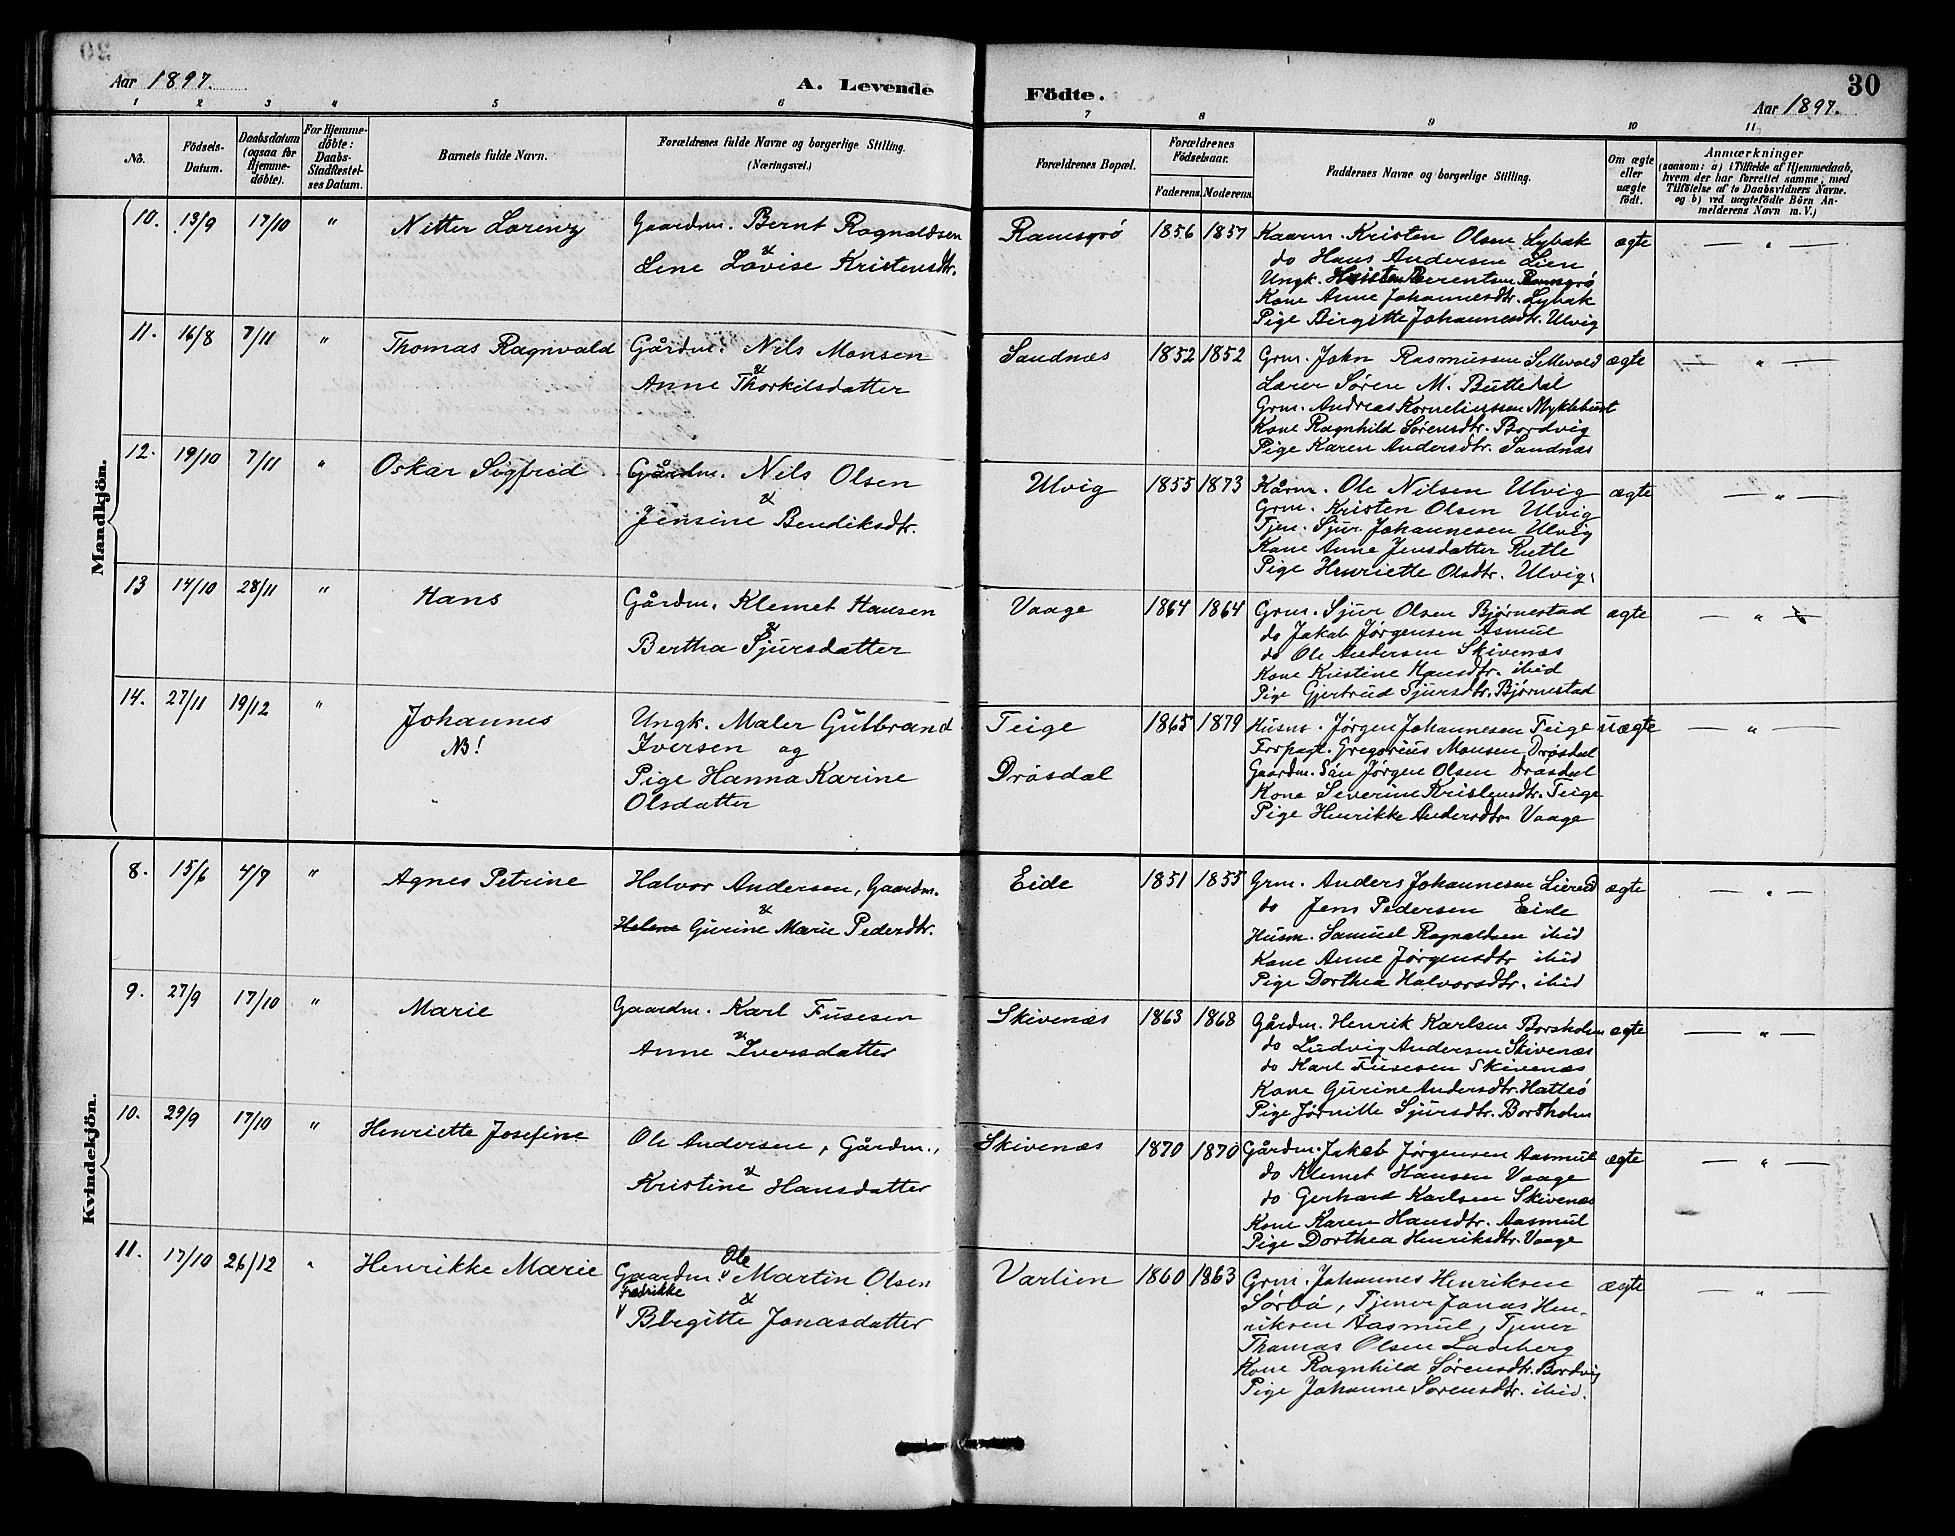 30
Aar 1897. A. Levende Födte. Aar 1897.
1 2 3 4 5 6 7 8 9 10 11
No. Födsels-Datum. Daabsdatum (ogsaa for Hjemme-döbte). For Hjemme-döbte: Daabs-Stadfæstel-ses Datum. Barnets fulde Navn. Forældrenes fulde Navne og borgerlige Stilling. (Næringsvei.) Forældrenes Bopæl. Forældrenes Födselsaar. Faderens. Moderens. Faddernes Navne og borgerlige Stilling. Om ægte eller uægte födt. Anmærkninger (saasom: a) i Tilfælde af Hjemmedaab, hvem der har forrettet samme, med Tilföielse af to Daabsvidners Navne, og b) ved uægtefödte Börn An-melderens Navn m. V.)
Mandkjön.
10. 13/9 17/10 " Nitter Lorenz Gaardm. Bernt Ragnaldsen Ramsgrø 1856 1857 Kaarm. Kristen Olsen Lybak ægte — " —
& do Hans Andersen Lien
Lene Lovise Kristensdtr. Ungk. Kristen Berentsen Ramsgrö
Kone Anne Johannesdtr. Lybak
Pige Birgitte Johannesdtr. Ulvig
11. 16/8 7/11 " Thomas Ragnvald Gårdm. Nils Monsen Sandnæs 1852 1852 Grm. John Rasmussen Sellevold ægte — " —
& Lærer Søren M. Buttedal
Anne Thorkilsdatter Grm. Andreas Korneliussen Myklebust
Kone Ragnhild Sørensdtr. Bordvig
Pige Karen Andersdtr. Sandnæs
12. 19/10 7/11 " Oskar Sigfrid Gårdm. Nils Olsen Ulvig 1855 1873 Kårm. Ole Nilsen Ulvig ægte — " —
& Grm. Kristen Olsen Ulvig
Jensine Bendiksdtr. Tjen. Sjur Johannesen Ulvig
Kone Anne Jensdatter Rutle
Pige Henriette Olsdtr. Ulvig.
13 14/10 28/11 " Hans Gårdm. Klemet Hansen Vaage 1864 1864 Grm. Sjur Olsen Bjørnestad ægte — " —
& do Jakob Jørgensen Asmul
Bertha Sjursdatter do Ole Andersen Skivenæs
Kone Kristine Hansdtr. ibid
Pige Gjertrud Sjursdtr. Bjørnestad
14. 27/11 19/12 " Johannes Ungk. Maler Gulbrand Teige 1865 1879 Husm. Jørgen Johannesen Teige uægte — " —
NB! Iversen og Forpagt. Gregorius Monsen Drøsdal
Pige Hanna Karine Drøsdal Gaardm. Søn Jørgen Olsen Drøsdal
Olsdatter Kone Severine Kristensdtr. Teige
Pige Henrikke Andersdtr. Vaage
Kvindekjön.
8. 15/6 4/7 " Agnes Petrine Halvor Andersen, Gaardm. Eide 1851 1855 Grm. Anders Johannesen ægte — " —
& do Jens Pedersen Eide
Helene Gurine Marie Pedersdtr. Husm. Samuel Ragnaldsen ibid
Kone Anne Jørgensdtr ibid
Pige Dorthea Halvorsdtr. ibid
9. 27/9 17/10 " Marie Gaardm. Karl Fusesen Skivenæs 1863 1868 Gårdm. Henrik Karlsen Borsholm ægte — " —
& do Ludvig Andersen Skivenæs
Anne Iversdatter do Karl Fusesen Skivenæs
Kone Gurine Andersdtr. Hatlesö
Pige Jørnille Sjursdtr. Borsholm
10. 29/9 17/10 " Henriette Josefine Ole Andersen, Gårdm., Skivenæs 1870 1870 Gårdm. Jakob Jørgensen Aasmul ægte — " —
& do Klemet Hansen Vaage
Kristine Hansdatter do Gerhard Karlsen Skivenæs
Kone Karen Hansdtr. Aasmul
Pige Dorthea Henriksdtr. Vaage
11. 17/10 26/12 " Henrikke Marie Gaardm. Ole Martin Olsen Varlien 1860 1863 Grm. Johannes Henriksen ægte — " —
Fredrikke & Sørbö, Tjener Jonas Hen-
Birgitte Jonasdatter riksen Aasmul, Tjener
Thomas Olsen Ladeberg
Kone Ragnhild Sørensdtr. Bordvig
Pige Johanne Sørensdtr. ibid.